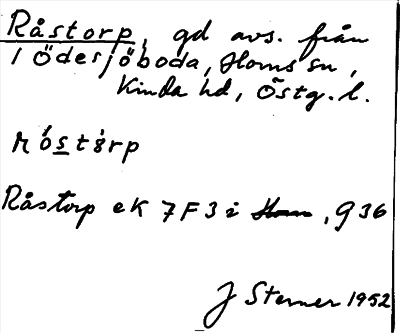 Råstorp, gd avs. från
1 Ödesjöboda, Horns sn,
Kinda hd, Östg. l.
Råstorp ek 7F3i , 936
J Sterner 1952